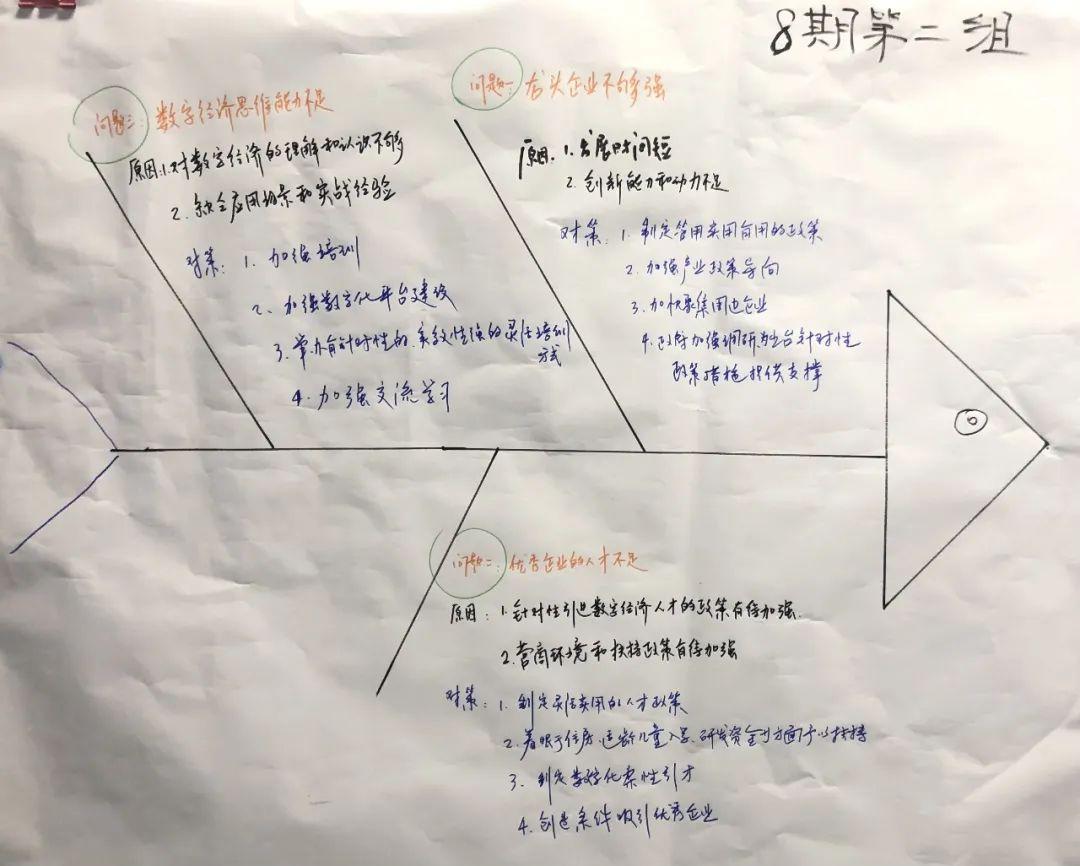 8期第二组
问题一: 龙头企业不够强
原因: 1. 发展时间短
2. 创新能力和动力不足
对策: 1. 制定管用实用有用的政策
2. 加强产业政策导向
3. 加快聚集周边企业
4. 政府加强调研为出台针对性
政策措施提供支撑
问题三: 数字经济思维能力不足
原因: 1. 对数字经济的理解和认识不够
2. 缺乏应用场景和实战经验
对策: 1. 加强培训
2、加强数字化平台建设
3. 举办有针对性的、实效性强的灵活培训
方式
4. 加强交流学习
问题二: 优秀企业的人才不足
原因: 1. 针对性引进数字经济人才的政策有待加强.
2. 营商环境和扶持政策有待加强
对策: 1. 制定灵活实用的人才政策
2. 着眼于住房、适龄儿童入学、研发资金等方面予以扶持
3. 制定数字化柔性引才
4. 创造条件吸引优秀企业